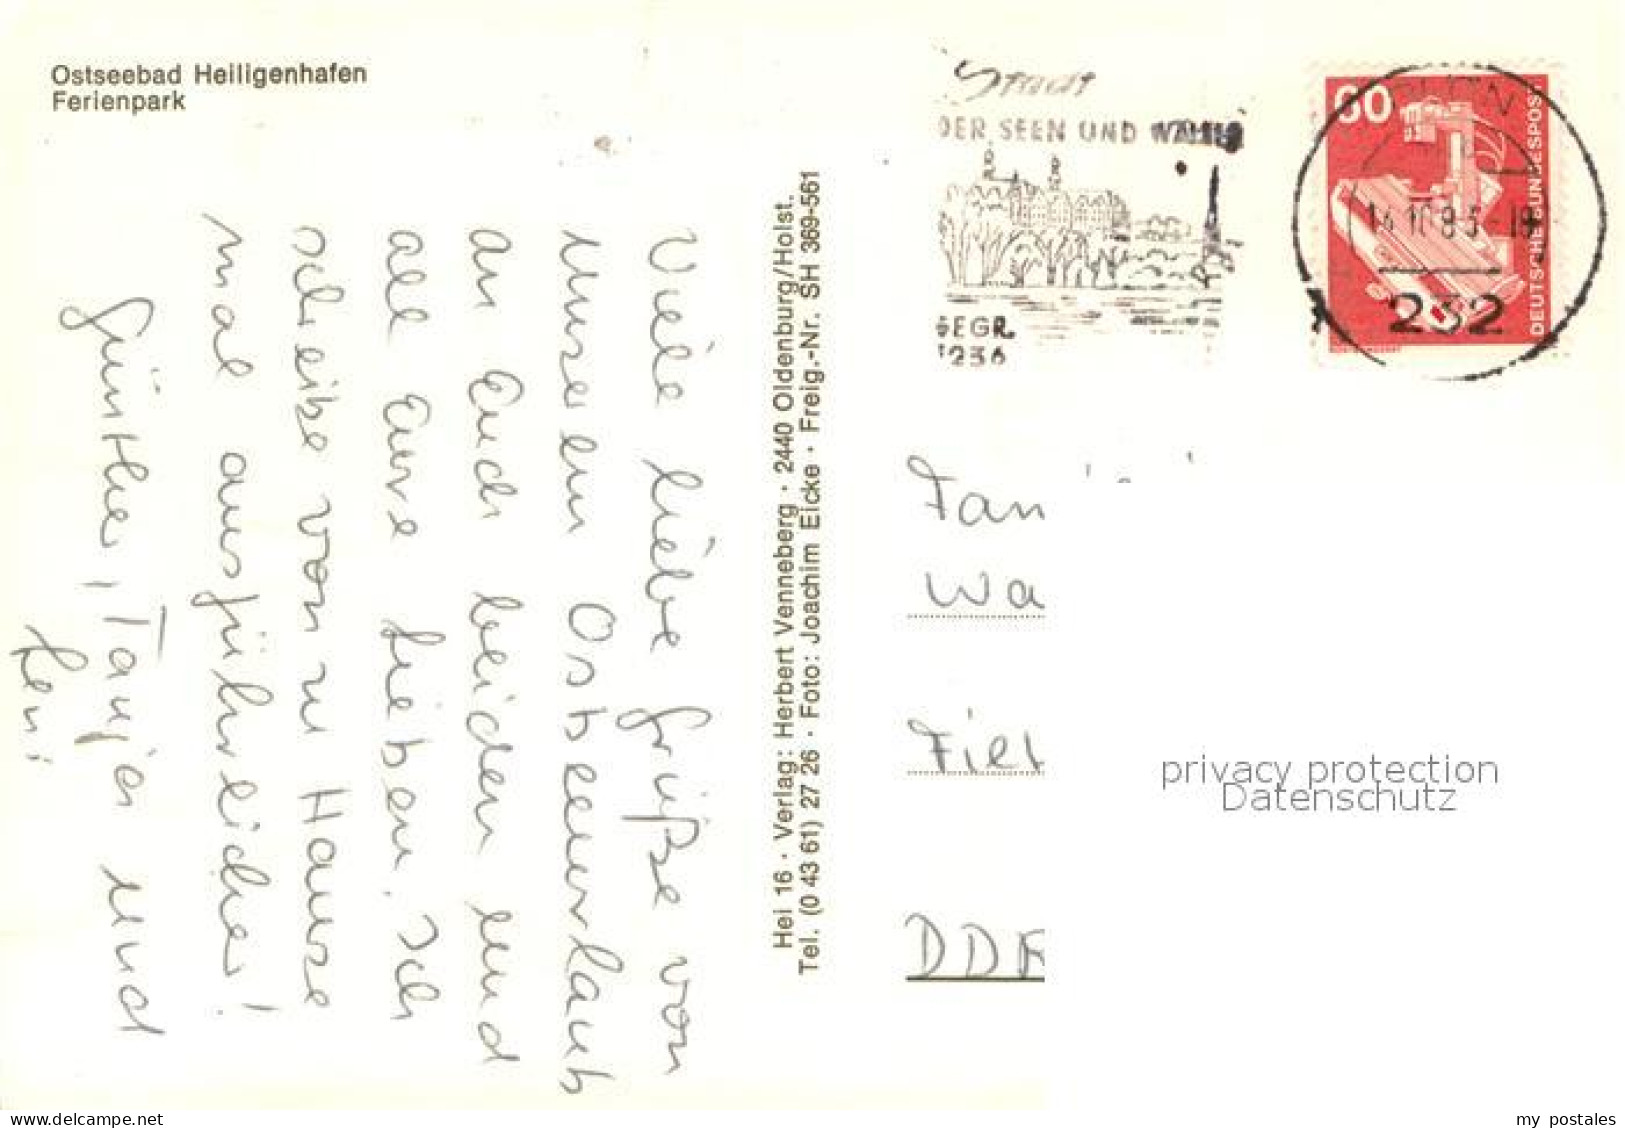 Ostseebad Heiligenhafen
Ferienpark
Viele liebe Grüße von
unserem Ostseeurlaub
an Euch beiden und
all Eure Lieben. Ich
schreibe von zu Hause
mal ausführlicher!
Günther, Tanja und
Hei 16 · Verlag: Herbert Venneberg · 2440 Oldenburg/Holst.
Tel. (0 43 61) 27 26 · Foto: Joachim Eicke · Freig.-Nr. SH 369-561
Stadt
DER SEEN UND WÄLDER
GEGR.
1236
60
DEUTSCHE BUNDESPOST
232
Fam
Wa
DDR
privacy protection
Datenschutz
delcampe.net
my_postales